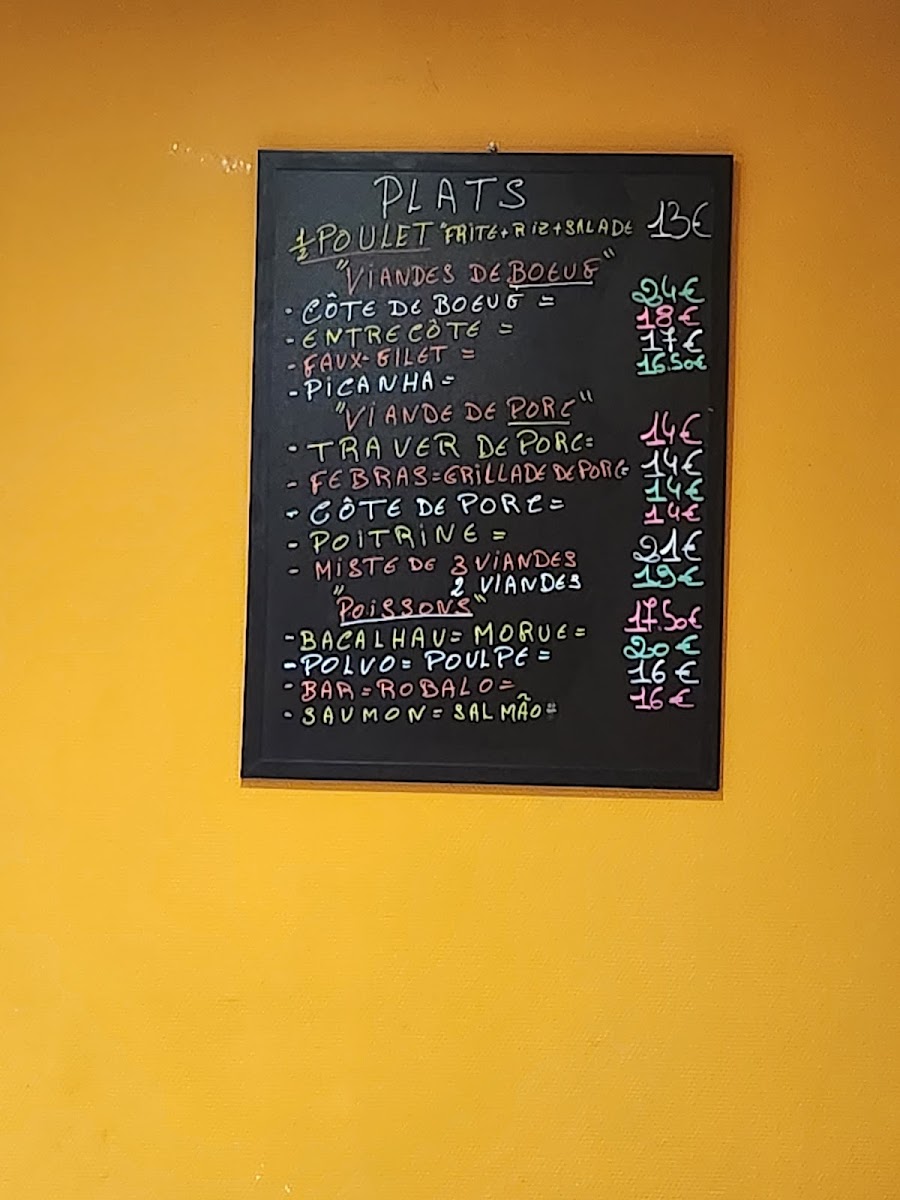 PLATS
½ POULET "FRITE+RIZ+SALADE 13€
"VIANDES DE BOEUF"
- CÔTE DE BOEUF = 24€
- ENTRECÔTE = 18€
- FAUX-FILET = 17€
- PICANHA= 16.50€
"VIANDE DE PORC"
- TRAVER DE PORC= 14€
- FEBRAS=GRILLADE DE PORC 14€
- CÔTE DE PORC= 14€
- POITRINE = 14€
- MISTE DE 3 VIANDES 21€
2 VIANDES 19€
"POISSONS"
- BACALHAU= MORUE= 17.50€
- POLVO= POULPE= 20€
- BAR=ROBALO= 16€
- SAUMON= SALMÃO= 16€